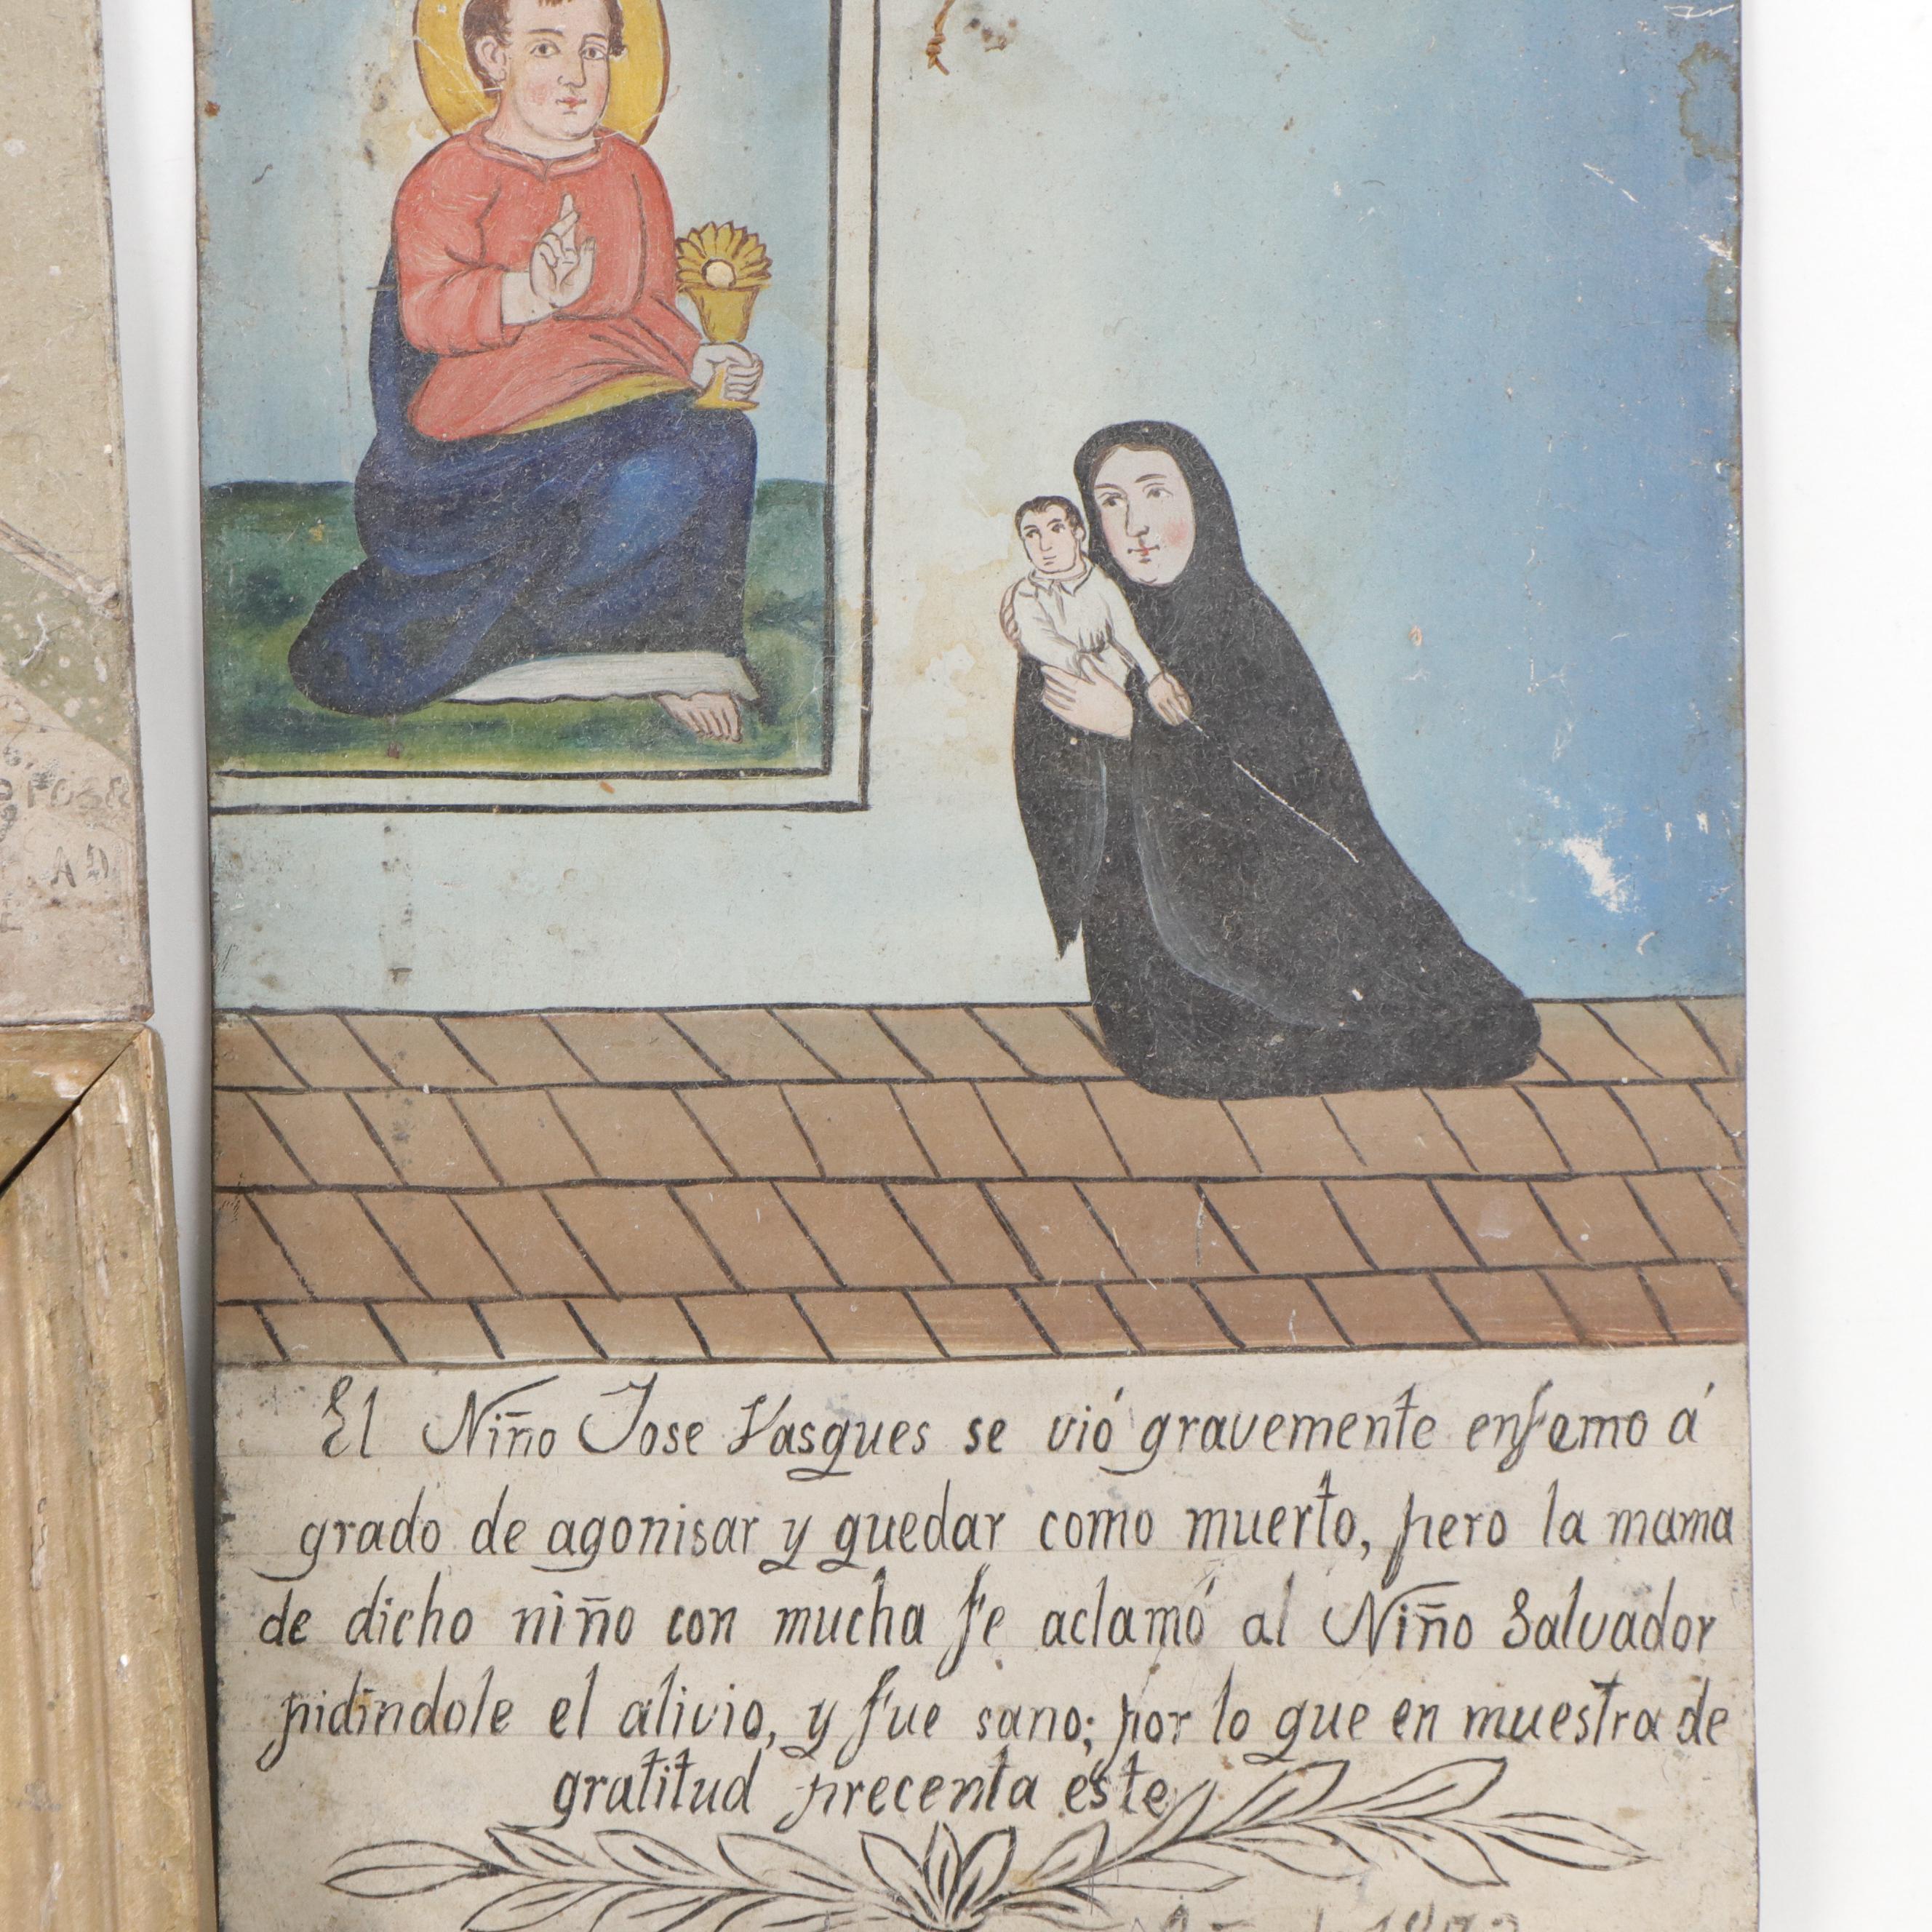 El Niño Jose Vasques se vió gravemente enfemo á
grado de agonisar y quedar como muerto, pero la mama
de dicho niño con mucha fe aclamó al Niño Salvador
pidindole el alivio, y fue sano; por lo que en muestra de
gratitud precenta este